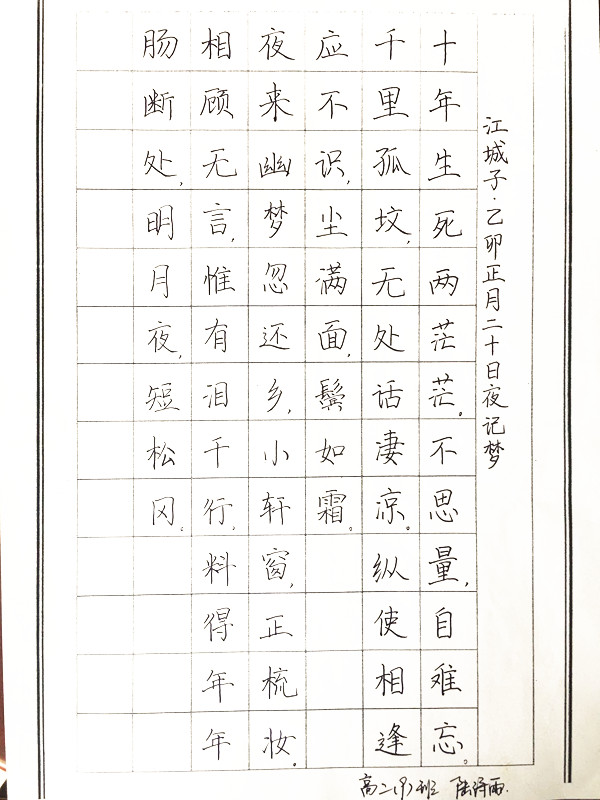 江城子·乙卯正月二十日夜记梦
十年生死两茫茫。不思量,自难忘。
千里孤坟,无处话凄凉。纵使相逢
应不识,尘满面,鬓如霜。
夜来幽梦忽还乡,小轩窗,正梳妆。
相顾无言,惟有泪千行,料得年年
肠断处,明月夜,短松冈。
高二(9)班 陆泽雨.